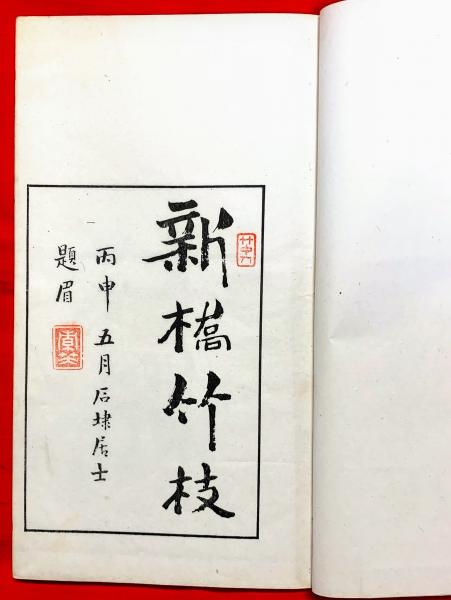 新橋竹枝
丙申五月后埭居士
題眉